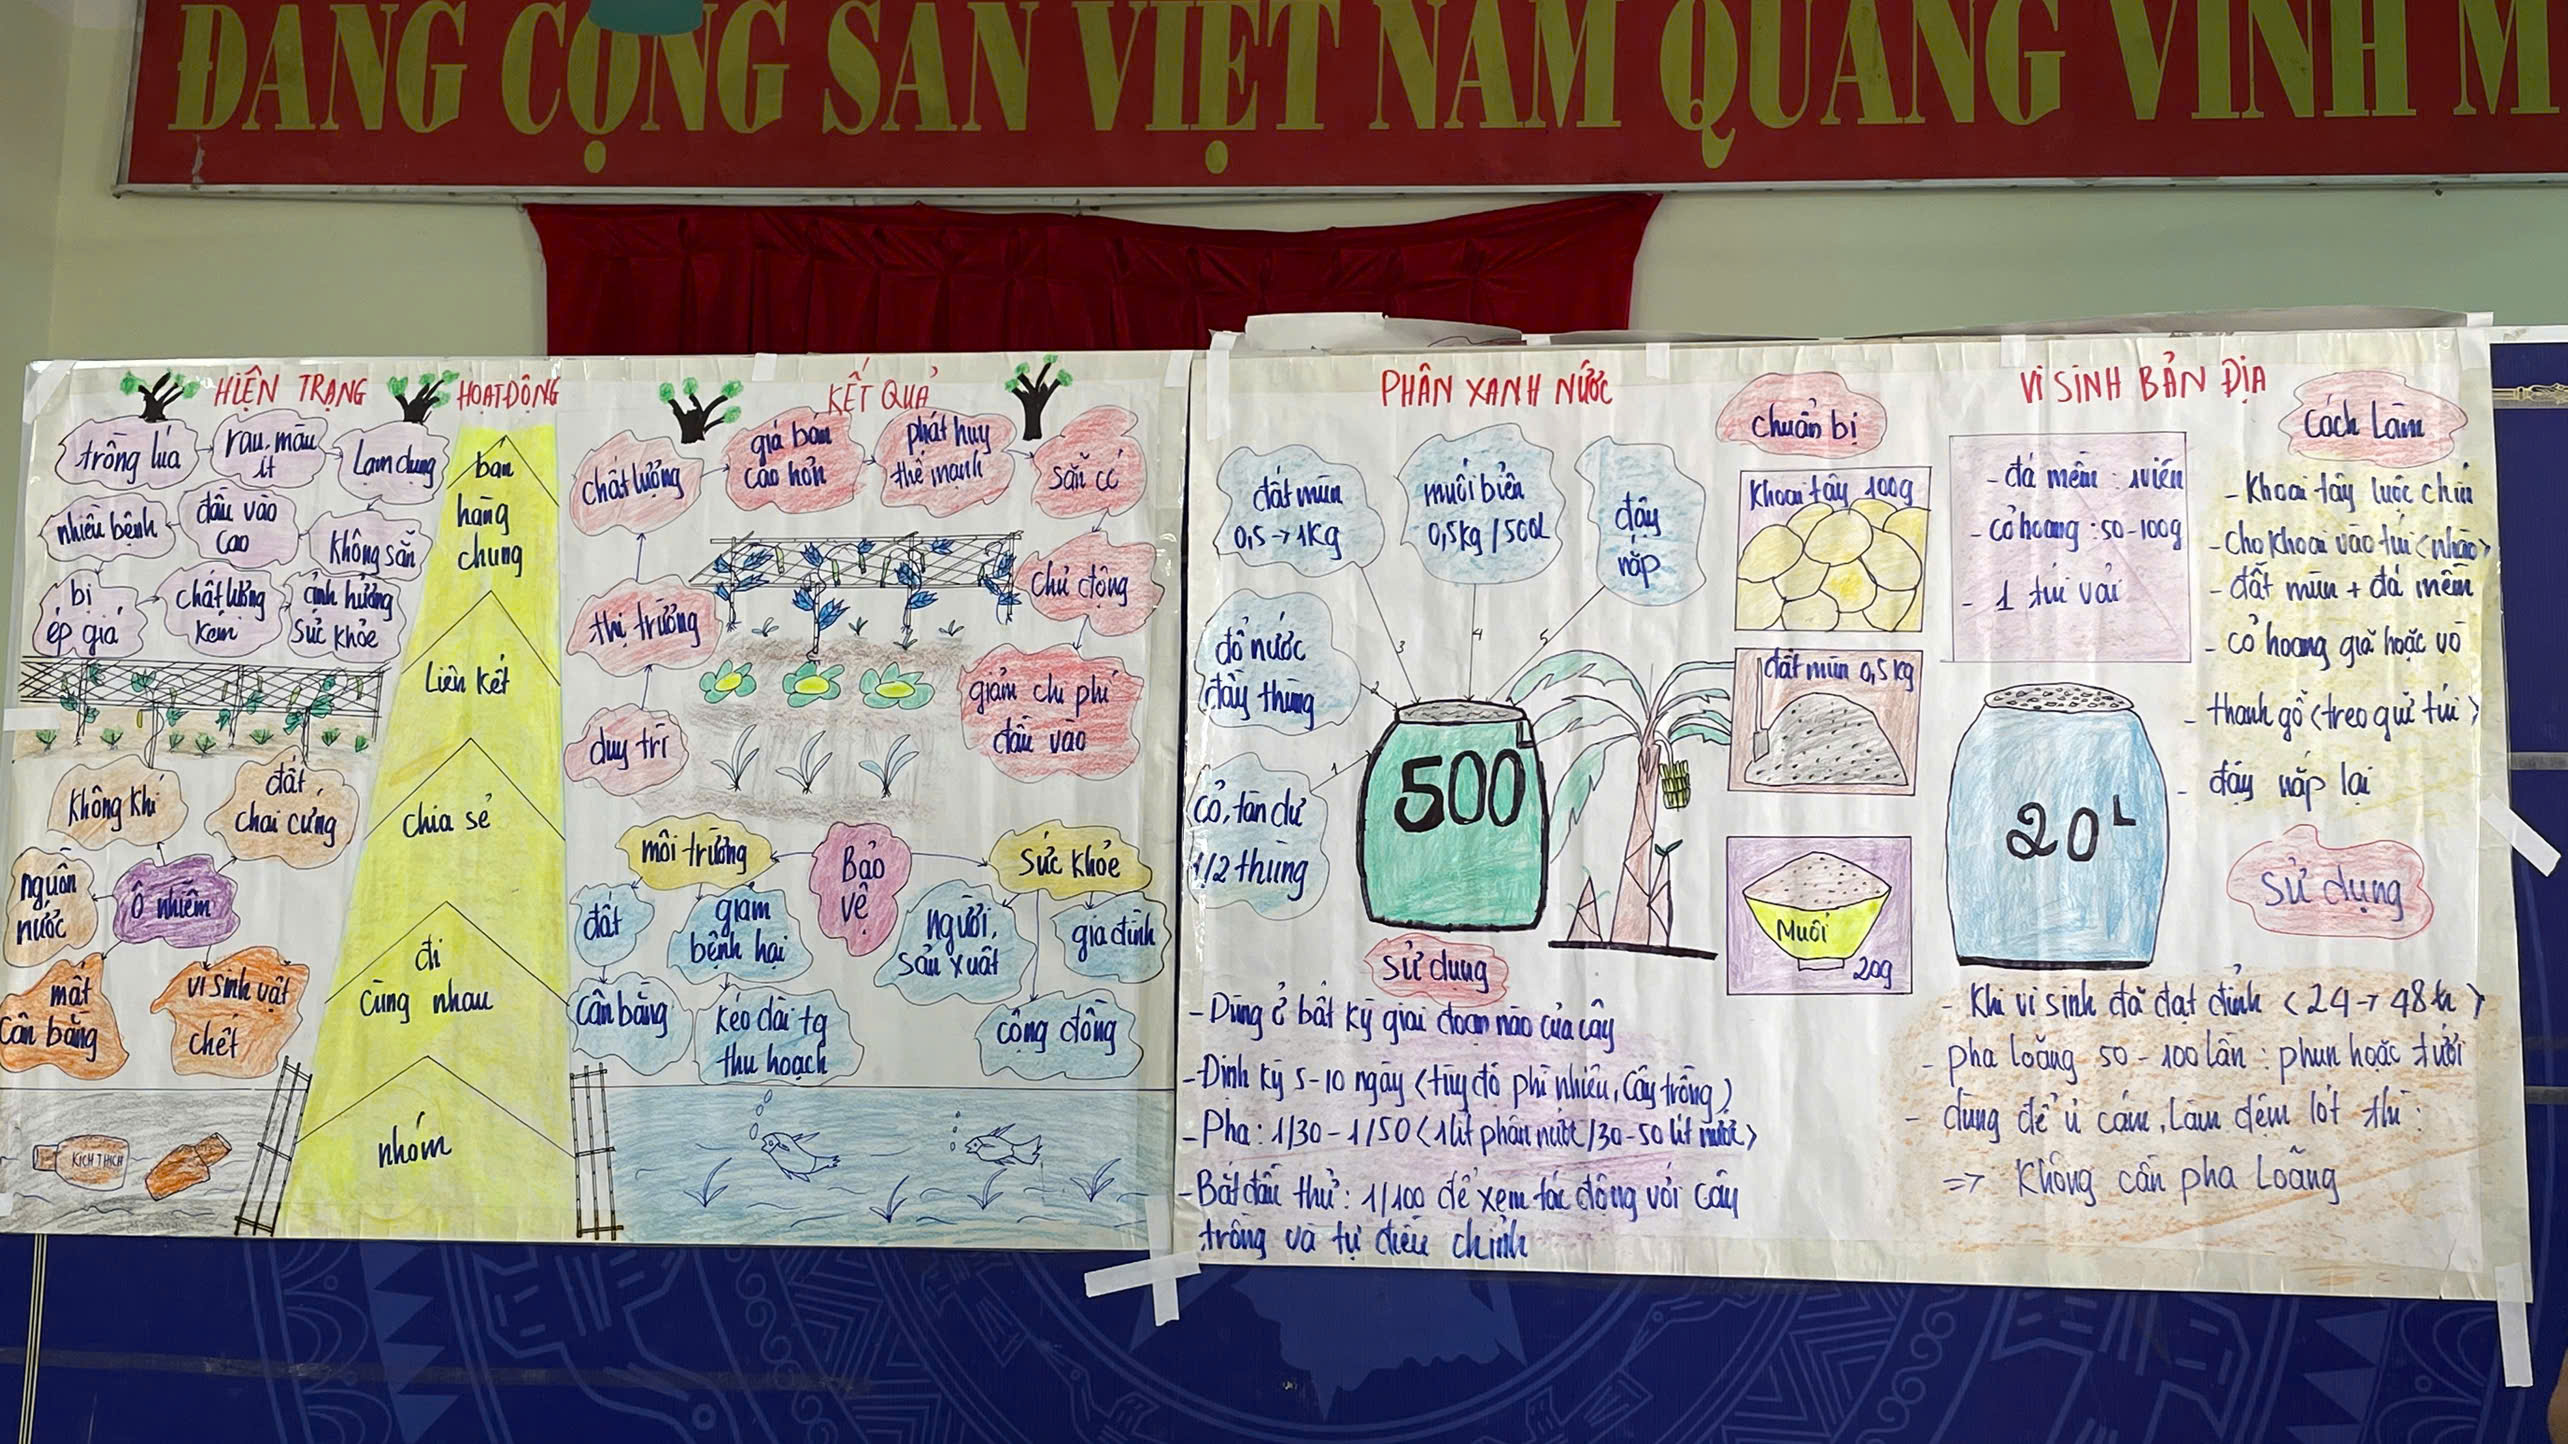 ĐẢNG CỘNG SẢN VIỆT NAM QUANG VINH M
HIỆN TRẠNG
trồng lúa
rau màu
ít
Lạm dụng
nhiều bệnh
đầu vào
cao
không sẵn
bị
ép giá
chất lượng
kém
ảnh hưởng
sức khỏe
không khí
đất
chai cứng
nguồn
nước
Ô nhiễm
mất
cân bằng
vi sinh vật
chết
KÍCH THÍCH
HOẠT ĐỘNG
bán
hàng
chung
Liên kết
chia sẻ
đi
cùng nhau
nhóm
KẾT QUẢ
chất lượng
giá bán
cao hơn
phát huy
thế mạnh
sẵn có
thị trường
chủ động
duy trì
giảm chi phí
đầu vào
môi trường
Bảo
vệ
sức khỏe
đất
giảm
bệnh hại
người
sản xuất
gia đình
Cân bằng
kéo dài tg
thu hoạch
cộng đồng
PHÂN XANH NƯỚC
đất mùn
0,5 → 1kg
muối biển
0,5kg / 500l
đậy
nắp
đổ nước
đầy thùng
3
4
5
2
1
cỏ, tàn dư
1/2 thùng
500L
sử dụng
- Dùng ở bất kỳ giai đoạn nào của cây
- Định kỳ 5-10 ngày (tùy độ phì nhiêu, cây trồng)
- Pha: 1/30 - 1/50 (1 lít phân nước / 30-50 lít nước)
- Bắt đầu thử: 1/100 để xem tác động với cây
trồng và tự điều chỉnh
VI SINH BẢN ĐỊA
chuẩn bị
Khoai tây 100g
đất mùn 0,5 kg
Muối
20g
- đá mềm : 1 viên
- cỏ hoang : 50-100g
- 1 túi vải
20L
Cách Làm
- Khoai tây luộc chín
- Cho khoai vào túi (nhào)
- đất mùn + đá mềm
- cỏ hoang giã hoặc vò
- thanh gỗ (treo giữ túi)
- đậy nắp lại
Sử dụng
- Khi vi sinh đã đạt đỉnh (24 → 48h)
- pha loãng 50 - 100 lần : phun hoặc tưới
- dùng để ủ cám, làm đệm lót thì :
=> Không cần pha loãng